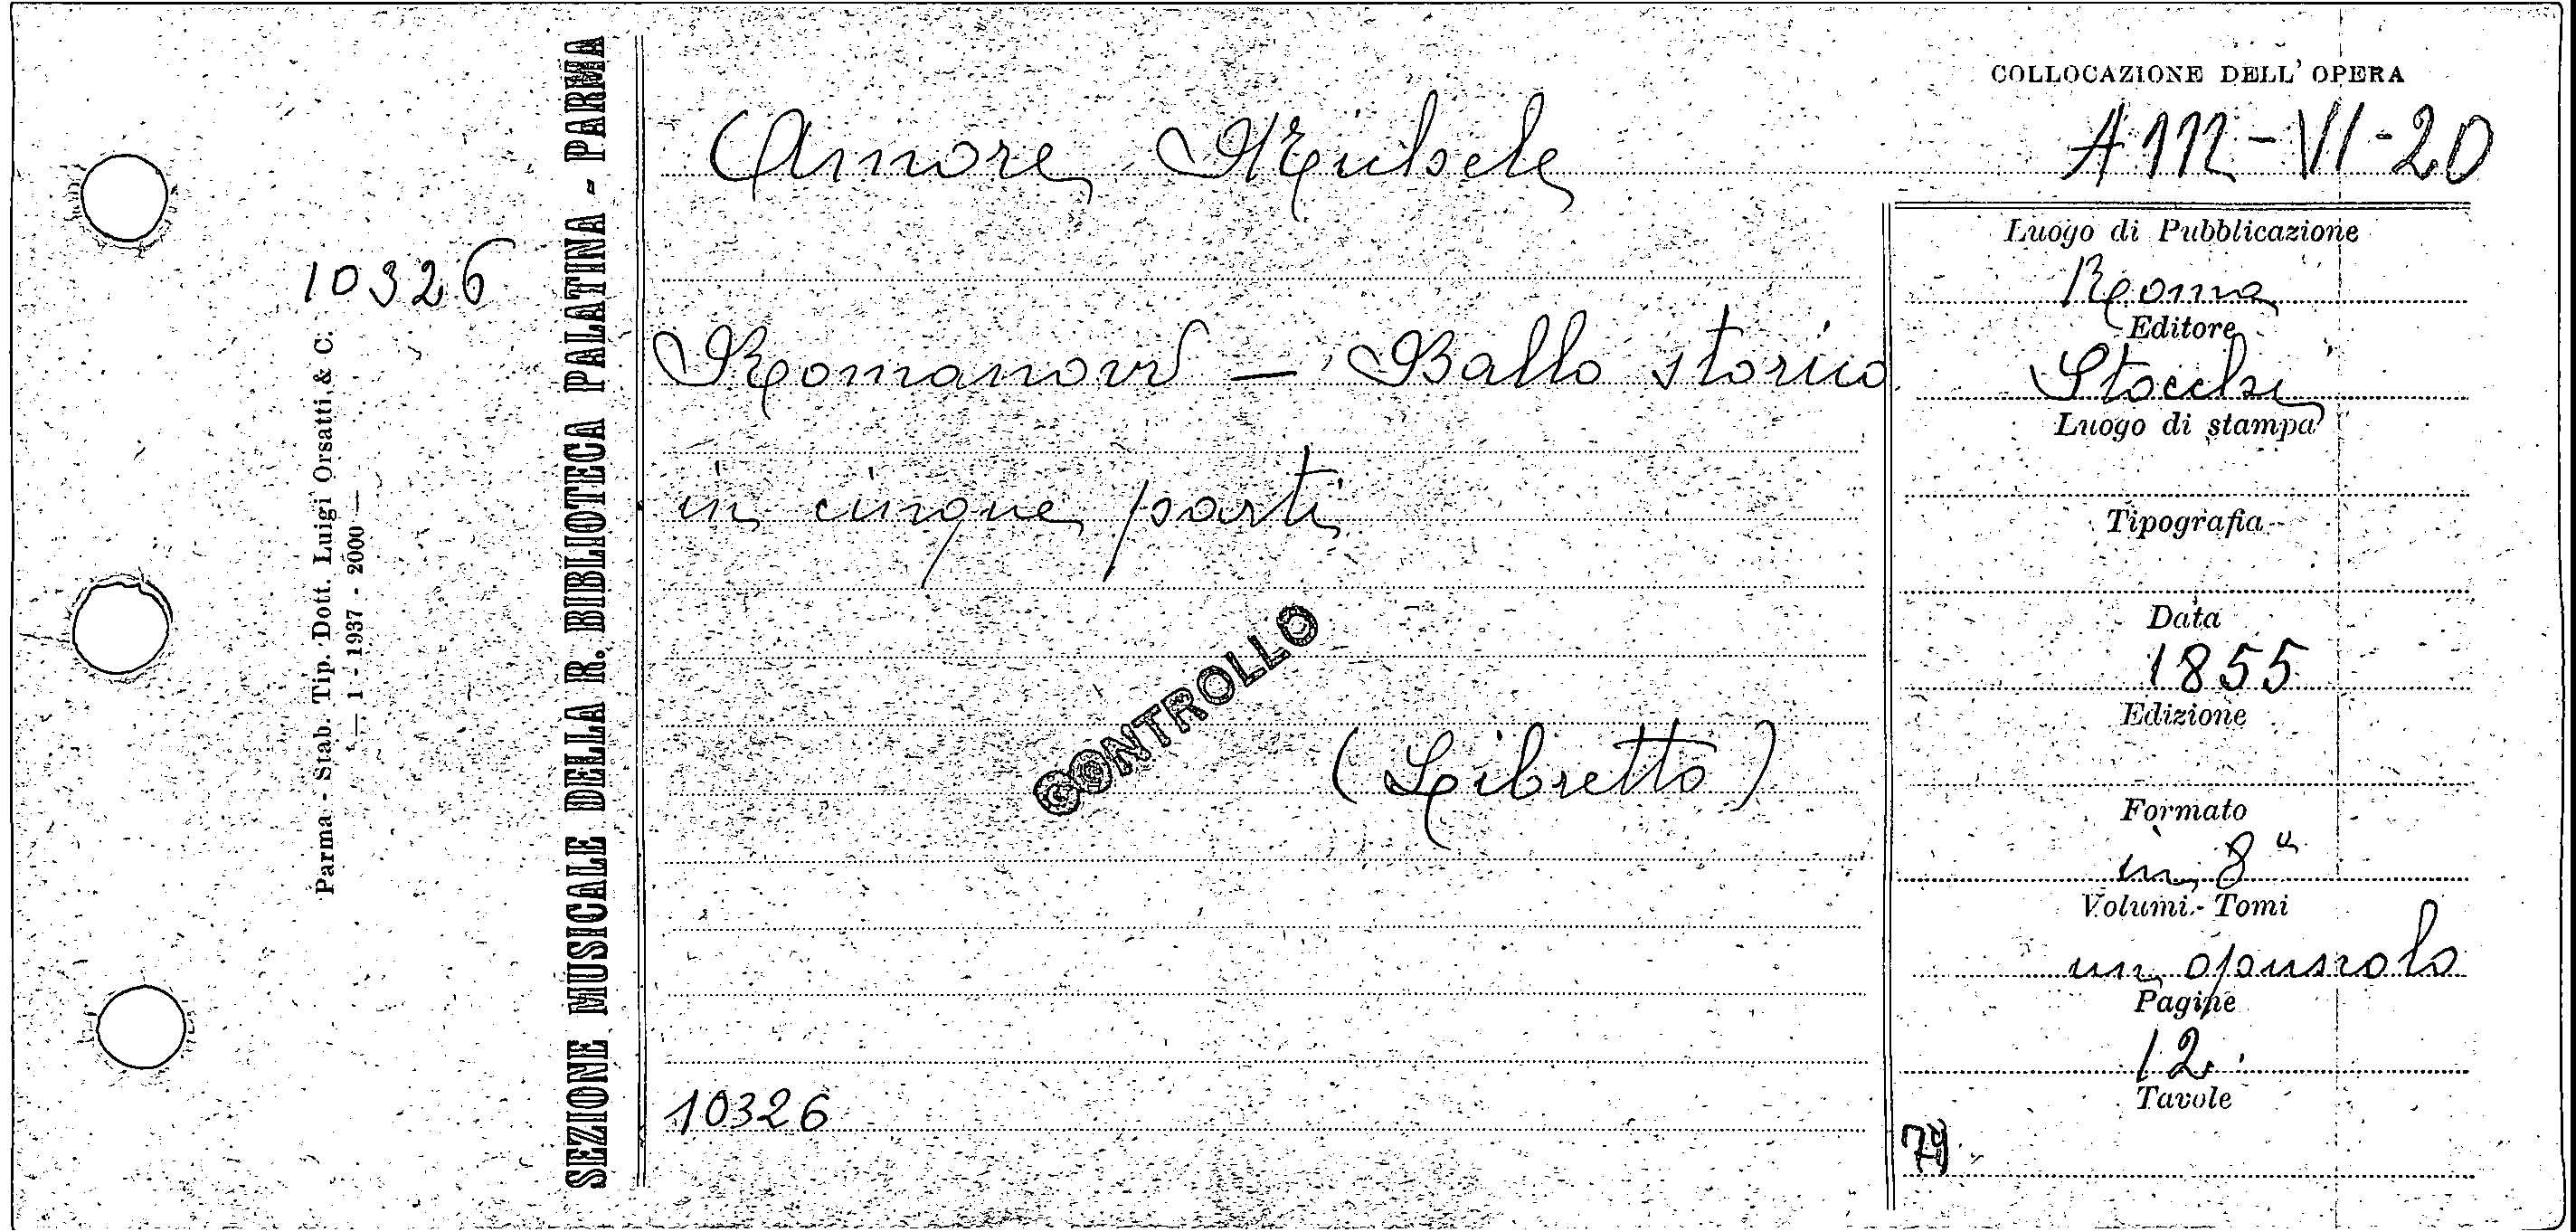 COLLOCAZIONE DELL' OPERA
A 112 - VI - 20
Amore Michele
Romanow — Ballo storico
in cinque parti
(Libretto)
CONTROLLO
10326
Luogo di Pubblicazione
Roma
Editore
Stocchi
Luogo di stampa
Tipografia
Data
1855
Edizione
Formato
in 8°
Volumi - Tomi
un opuscolo
Pagine
12
Tavole
79
SEZIONE MUSICALE DELLA R. BIBLIOTECA PALATINA - PARMA
10326
Parma - Stab. Tip. Dott. Luigi Orsatti & C.
— 1 - 1937 - 2000 —